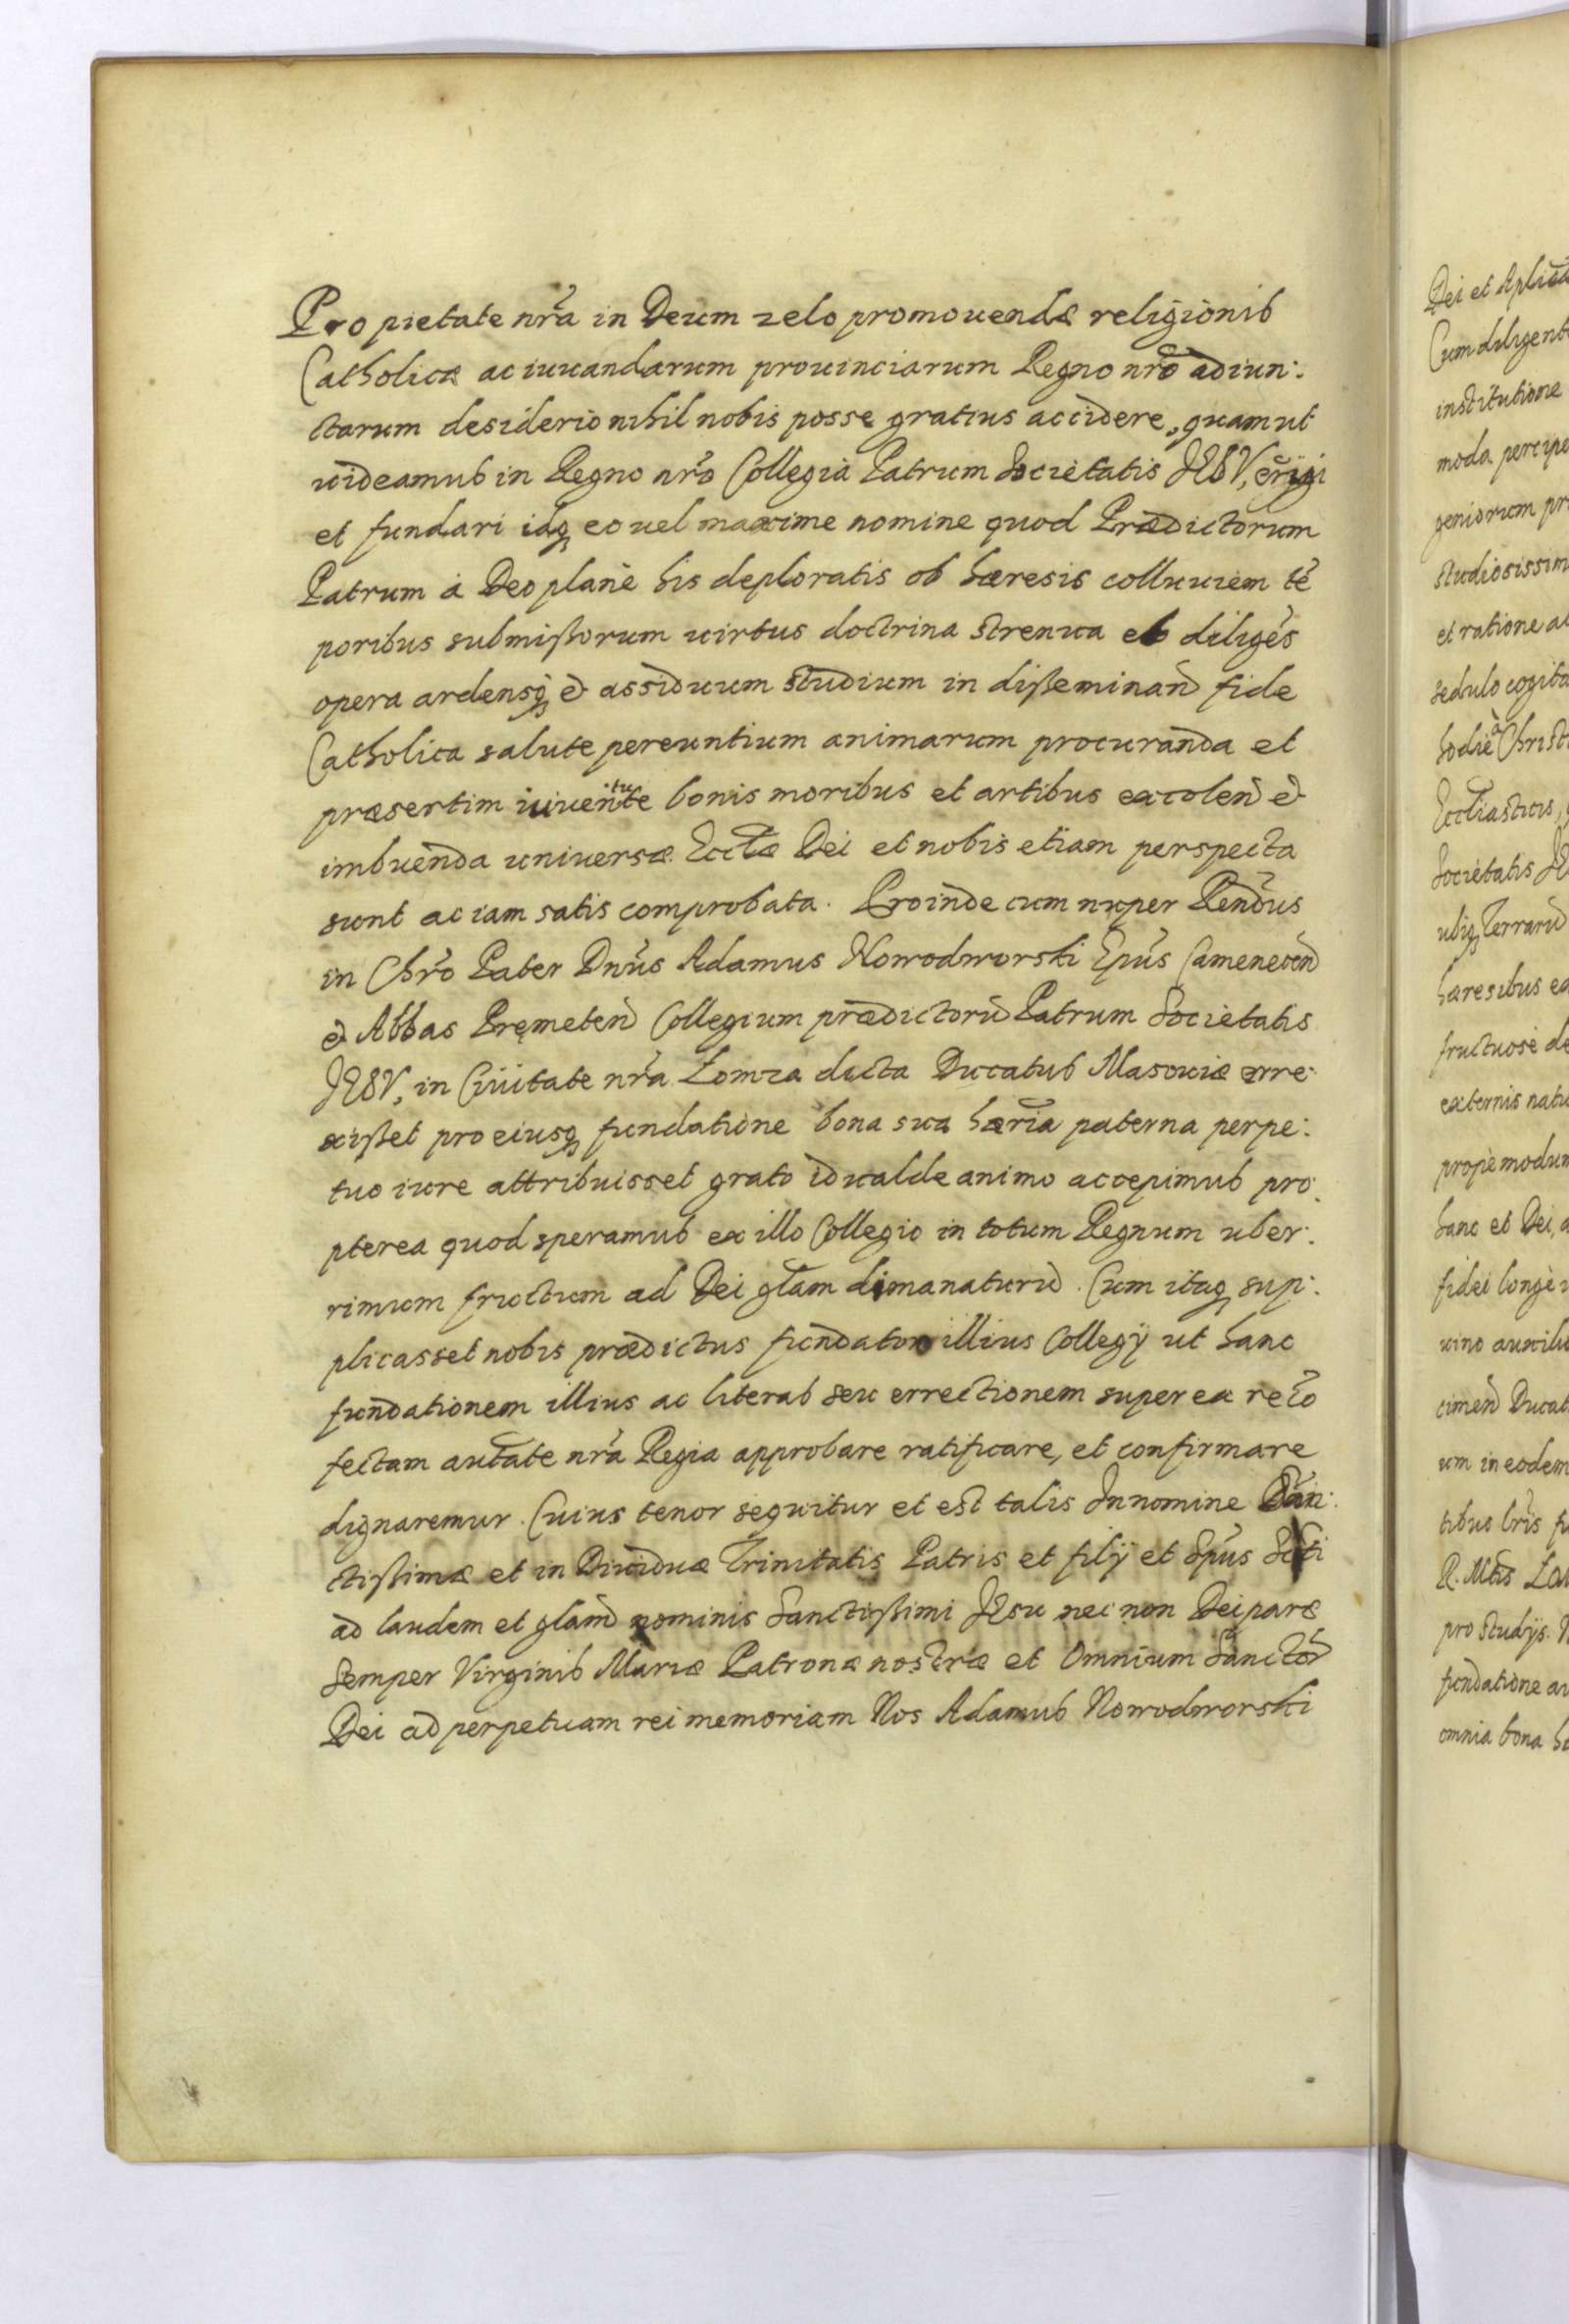 Pro pietate nr̃a in Deum zelo promouendæ religionis
Catholicæ ac iuuandarum prouinciarum Regno nr̃o adiun:
ctarum desiderio nihil nobis posse gratius accidere, quam ut
uideamus in Regno nr̃o Collegia Patrum Societatis JESV, erigi
et fundari idq́ eo uel maxime nomine quod Prædictorum
Patrum á Deo planè his deploratis ob hæresis colluuiem tẽ
poribus submißorum uirtus doctrina strenua et diligẽs
opera ardensq́ & assiduum studium in dißeminand̃ fide
Catholica salute pereuntium animarum procuranda et
præsertim iuuentute bonis moribus et artibus excolend̃ &
imbuenda uniuersæ Eccl̃æ Dei et nobis etiam perspecta
sunt ac iam satis comprobata. Proinde cum nuper Rend̃us
in Chr̃o Pater Dnũs Adamus Nowodworski Ep̃us Camenecen̄
& Abbas Pręmeten̄ Collegium prædictorũ Patrum Societatis
JESV, in Ciuitate nr̃a Łomza dicta Ducatus Masouiæ erre:
xißet pro eiusq́ fundatione bona sua hær̃ia paterna perpe:
tuo iure attribuisset grato id ualde animo accepimus pro:
pterea quod speramus ex illo Collegio in totum Regnum uber:
rimum fructum ad Dei gl̃am dimanaturũ. Cum itaq́ sup:
plicasset nobis prædictus fundator illius Collegÿ ut hanc
fundationem illius ac literas seu errectionem super ea rec̃to
fectam autãte nr̃a Regia approbare ratificare, et confirmare
dignaremur. Cuius tenor sequitur et est talis In nomine San:
ctißimæ et in Diuiduæ Trinitatis Patris et filÿ et Sp̃us Scti
ad laudem et gl̃am̃ nominis Sanctißimi JEsu nec non Deiparæ
Semper Virginis Mariæ Patronæ nostræ et Omnium Sanctor̃
Dei ad perpetuam rei memoriam Nos Adamus Nowodworski
Cum diligent
institutione
moda percipe
geniorum pr
studiosissim
et ratione a
sedulo cogita
hodie à Christ
Eccl̃iasticis,
Societatis JE
ubiq́ Terrarũ
hæresibus ea
fructuosè de
externis natu
propèmodum
hanc et Dei, a
fidei longè
uino auxili
cimen̄ Ducat
um in eodem
tibus lr̃is f
R. Mt̃is La
pro Studÿs.
fundatione a
omnia bona h